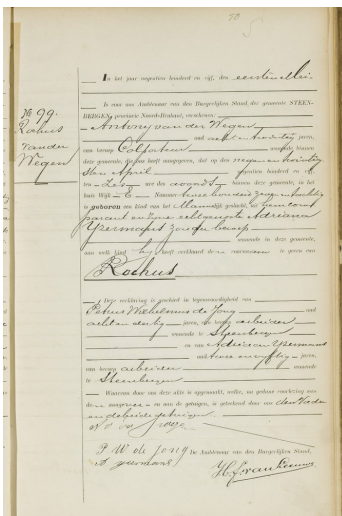 No 99.
Rochus
van der
Wegen
In het jaar negentien honderd en vijf, den eersten Mei
is voor ons Ambtenaar van den Burgerlijken Stand, der gemeente STEEN-
BERGEN, provincie Noord-Braband, verschenen:
Antony van der Wegen
oud jaren,
van beroep Colporteur wonende binnen
deze gemeente, die ons heeft aangegeven, dat op den negen en twintig
sten April negentien honderd en vijf,
ten zes ure des avonds binnen deze gemeente, in het
huis Wijk E Nummer twee honderd
is geboren een kind van het Mannelijk geslacht, uit hem comparant
en zijne echtgenoote Adriana
IJzermans zonder beroep
wonende in deze gemeente,
aan welk kind hij heeft verklaard de voornaam te geven van
Rochus
Deze verklaring is geschied in tegenwoordigheid van
Petrus Wilhelmus de Jong oud
acht en dertig jaren, van beroep arbeider
wonende te Steenbergen
en van Adriaan IJzermans
oud twee en vijftig jaren,
van beroep arbeider wonende
te Steenbergen
Waarvan door ons deze akte is opgemaakt, welke, na gedane voorlezing aan
den aangever en aan de getuigen, is geteekend door ons den Vader
en de beide getuigen
P W de Jong De Ambtenaar van den Burgerlijken Stand,
A ijzermans